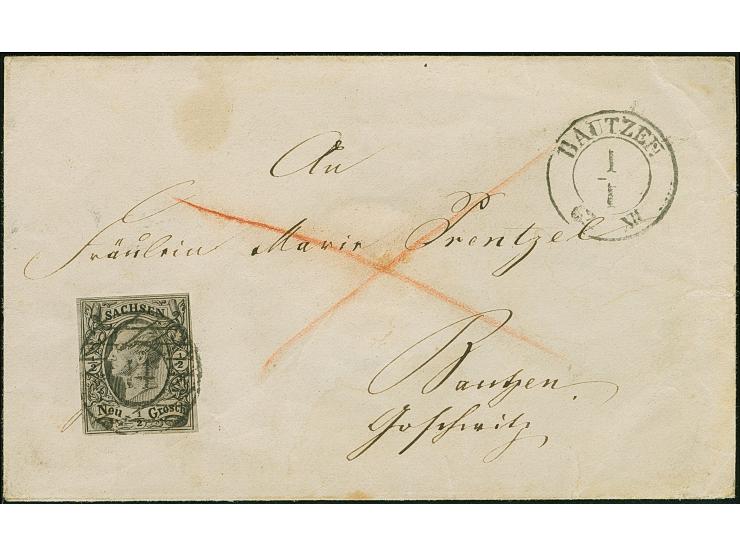 BAUTZEN
1
1
63 XII
An
Fräulein Marie Prentzel
Bautzen.
Goschwitz
SACHSEN
1/2 1/2
Neu 1/2 Grosch